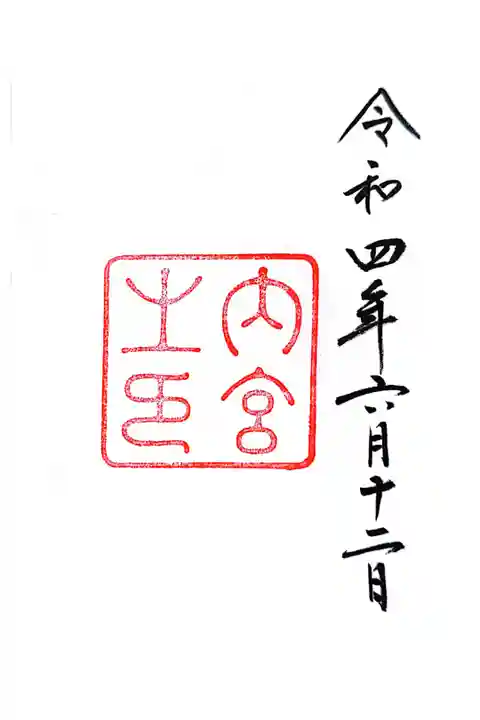 令和四年六月十二日
内宮
之印